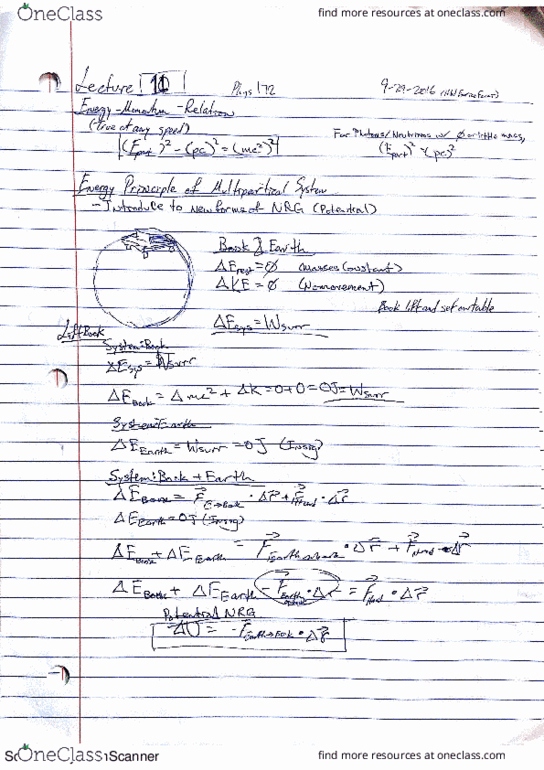 OneClass
find more resources at oneclass.com
Lecture 10 Phys 172 9-29-2016
Energy-Momentum-Relation
(true at any speed)
(Epart)² - (pc)² = (mc²)²
For Photons/Neutrinos w/ Ø or little mass,
(Epart)² - (pc)²
Energy Principle of Multipartical System
- Introduce to new forms of NRG (Potential)
Book & Earth
ΔErest = Ø (masses constant)
ΔKE = Ø (No movement)
Book lift and set on table
ΔEsys = Wsurr
Lift Book
System: Book
ΔEsys = Wsurr
ΔEBook = Δmc² + ΔK = 0+0 = 0J = Wsurr
System: Earth
ΔEEarth = Wsurr = 0J (Insig)
System: Book + Earth
ΔEBook = F⃗E→Book · Δr⃗ + F⃗Hand · Δr⃗
ΔEEarth = 0J (Insig)
ΔEBook + ΔEEarth = · Δr⃗ + F⃗Hand · Δr⃗
ΔEBook + ΔEEarth · Δr⃗ = F⃗Hand · Δr⃗
Potential NRG
ΔU = -F⃗Earth→Book · Δr⃗
OneClass
Scanner
find more resources at oneclass.com